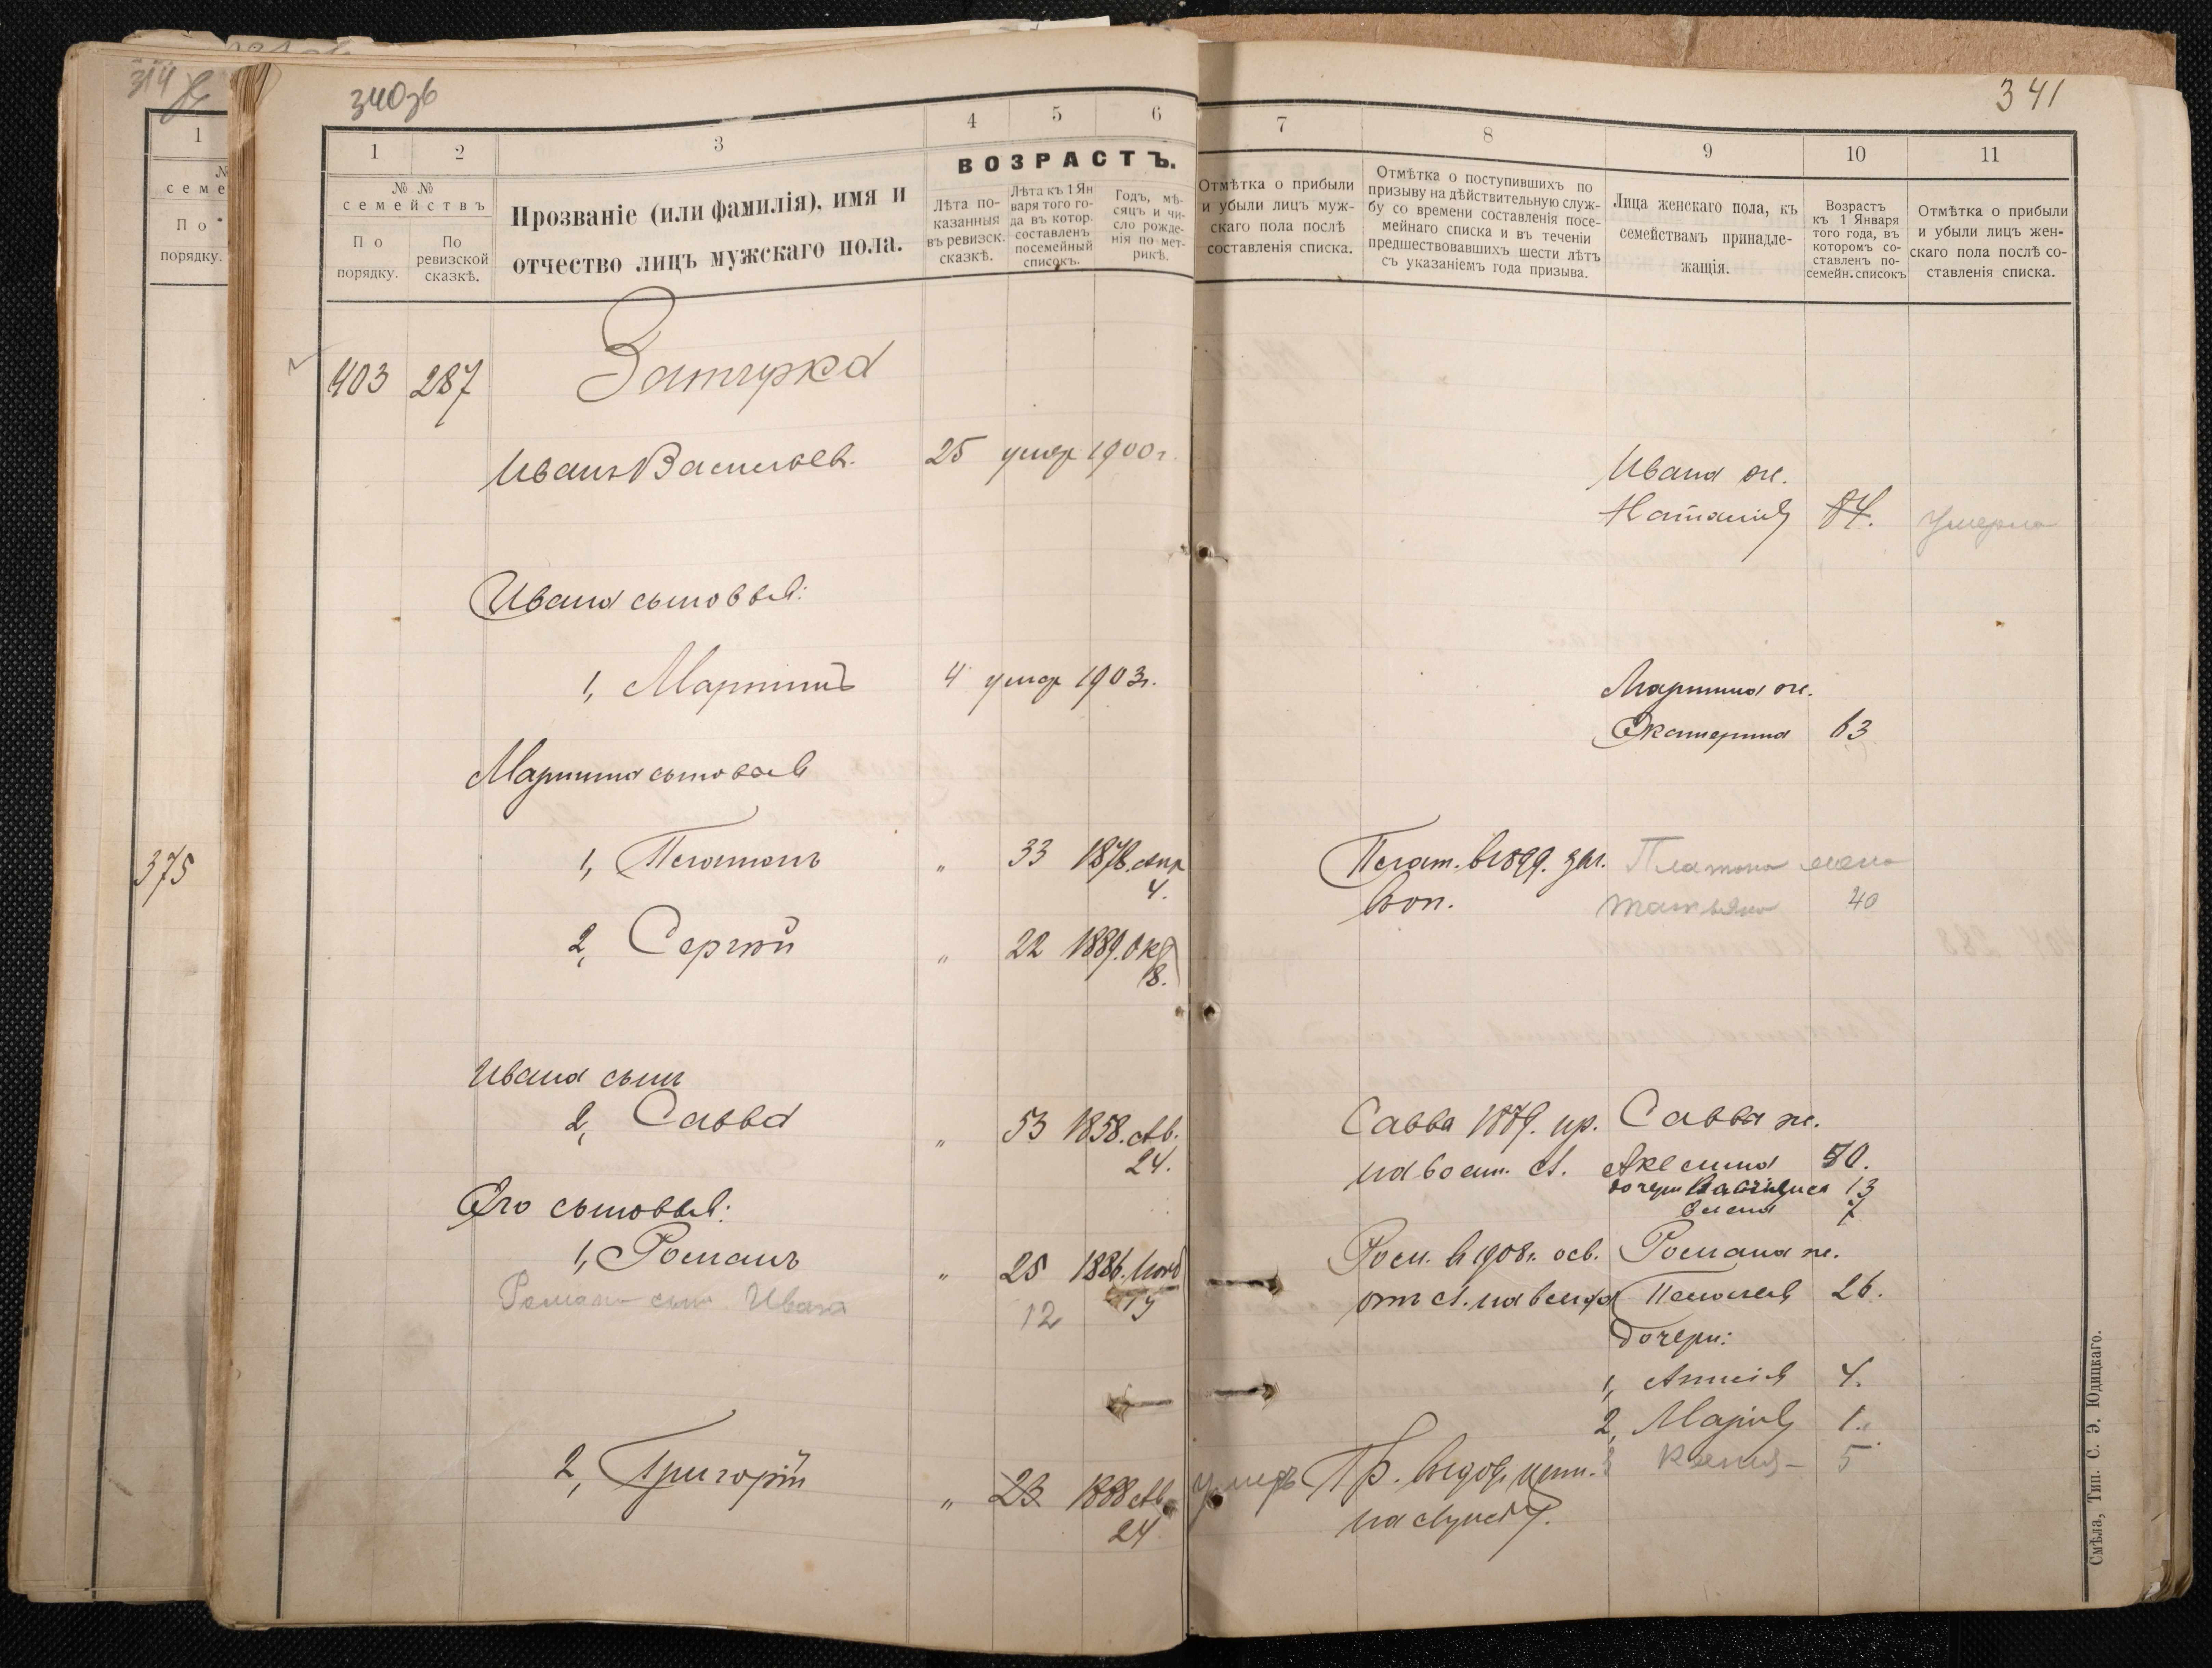 314
340зв
341
1
№
семе
По
порядку.
375
1
2
3
4
5
6
7
8
9
10
11
№ №
семействъ
По
порядку.
По
ревизской
сказкѣ.
Прозваніе (или фамилія), имя и
отчество лицъ мужскаго пола.
ВОЗРАСТЪ.
Лѣта по-
казанныя
въ ревизск.
сказкѣ.
Лѣта къ 1 Ян
варя того го-
да въ котор.
составленъ
посемейный
списокъ.
Годъ, мѣ-
сяцъ и чи-
сло рожде-
нія по мет-
рикѣ.
Отмѣтка о прибыли
и убыли лицъ муж-
скаго пола послѣ
составленія списка.
Отмѣтка о поступившихъ по
призыву на дѣйствительную служ-
бу со времени составленія посе-
мейнаго списка и въ теченіи
предшествовавшихъ шести лѣтъ
съ указаніемъ года призыва.
Лица женскаго пола, къ
семействамъ принадле-
жащія.
Возрастъ
къ 1 Января
того года, въ
которомъ со-
ставленъ по-
семейн. списокъ
Отмѣтка о прибыли
и убыли лицъ жен-
скаго пола послѣ со-
ставленія списка.
403 287 Затурка
Иванъ Васильев. 25 умер 1900 г.
Ивана ж.
Наталія 84. умерла
Ивана сыновья:
1, Мартинъ 4 умер 1903 г.
Мартина ж.
Екатерина 63
Мартина сыновья
1, Платонъ " 33 1878. Апр
4.
Плат. в 1899. зач.
в оп.
Платона жена
Татьяна 40
2, Сергѣй " 22 1889. Окт
8.
Ивана сын
2, Савва " 53 1858. Ав.
24.
Савва 1879. пр.
Савва ж.
Аксенья 50.
дочери 13
Елена 7
Его сыновья:
1, Романъ " 25 1886. Нояб
19
Ром. в 1908 г. осв.
Романа ж.
Пелагея 26.
Романа сын Иван 12
Дочери:
1, Анисія 4.
2, Марія 1.
3 Ксенія 5
2, Григорій " 23 1888 Ав.
24
умеръ
Гр. в 1909.
на службу.
Смѣла, Тип. С. Э. Юдицкаго.